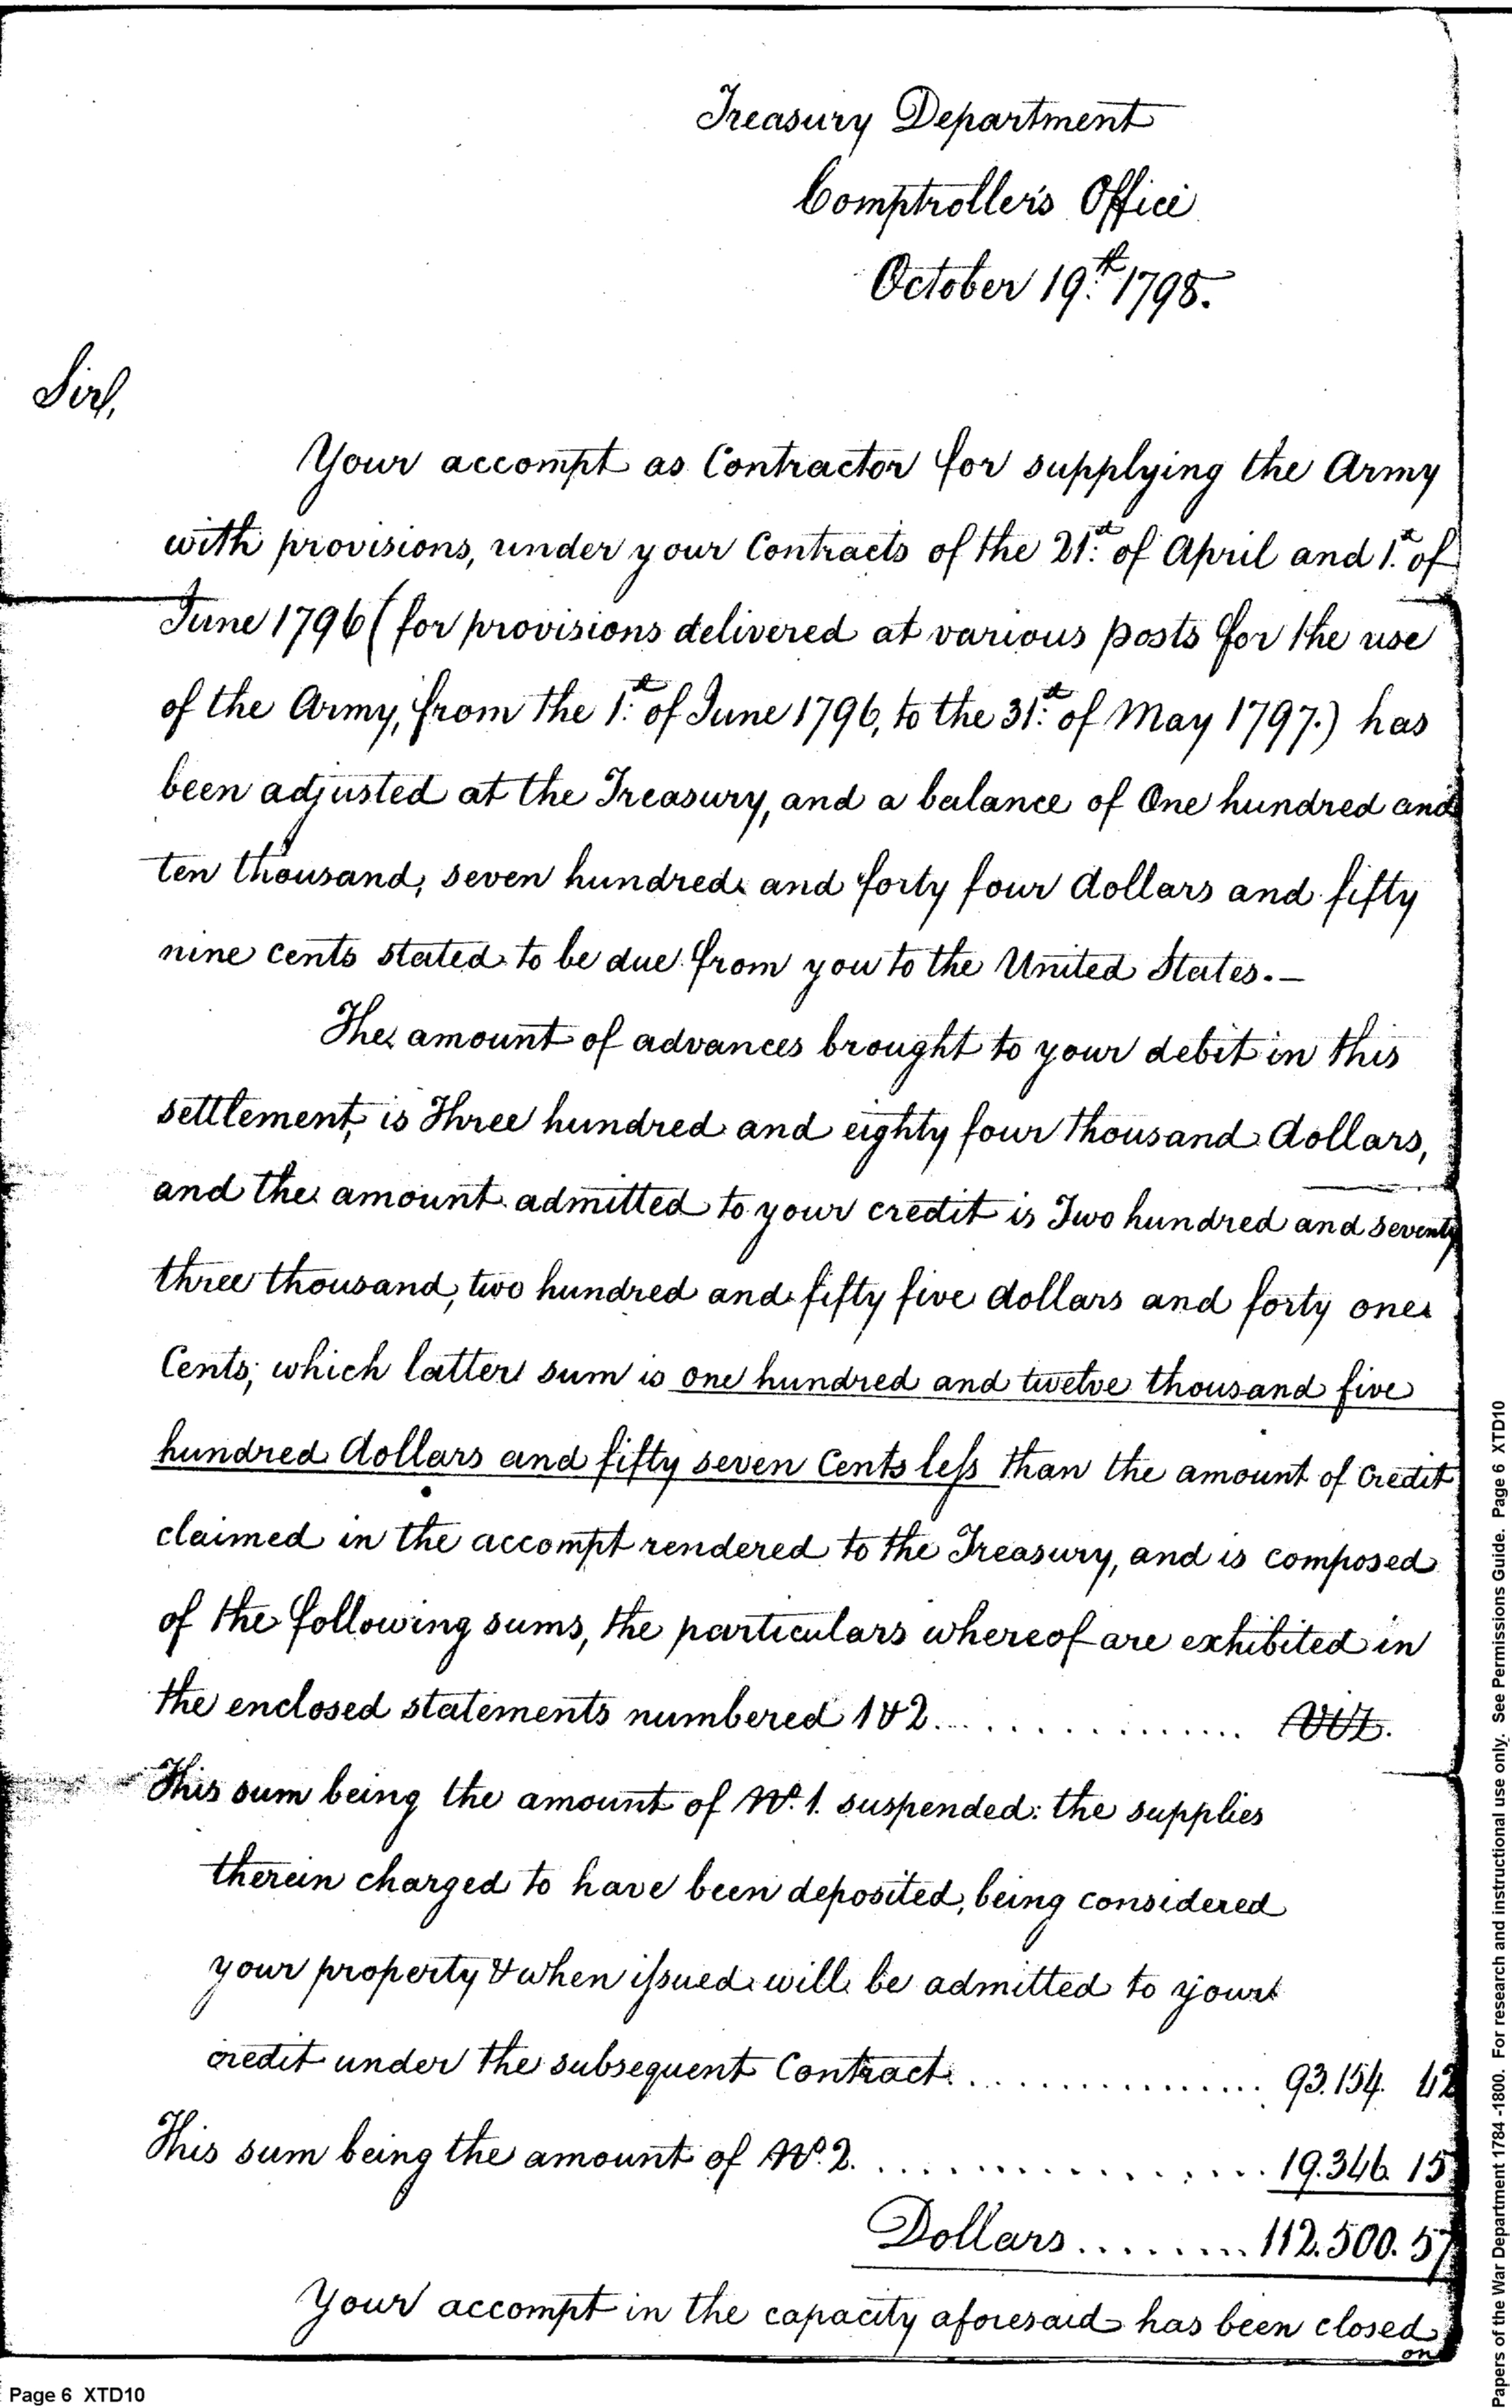 Treasury Department
Comptroller's Office
October 19th 1798.
Sir,
Your accompt as Contractor for supplying the Army
with provisions, under your Contracts of the 21st of April and 1st of
June 1796 (for provisions delivered at various posts for the use
of the Army, from the 1st of June 1796, to the 31st of May 1797.) has
been adjusted at the Treasury, and a balance of One hundred and
ten thousand, seven hundred and forty four dollars and fifty
nine cents stated to be due from you to the United States.—
The amount of advances brought to your debit in this
settlement, is Three hundred and eighty four thousand dollars,
and the amount admitted to your credit is Two hundred and seventy
three thousand, two hundred and fifty five dollars and forty one
Cents; which latter sum is one hundred and twelve thousand five
hundred dollars and fifty seven Cents less than the amount of Credit
claimed in the accompt rendered to the Treasury, and is composed
of the following sums, the particulars whereof are exhibited in
the enclosed statements numbered 1 & 2................. Viz.
This sum being the amount of No. 1. suspended: the supplies
therein charged to have been deposited, being considered
your property & when issued will be admitted to your
credit under the subsequent Contract................. 93.154. 42
This sum being the amount of No. 2. ................. 19.346. 15
Dollars......... 112.500. 57
Your accompt in the capacity aforesaid has been closed
on
Page 6 XTD10
Papers of the War Department 1784 -1800. For research and instructional use only. See Permissions Guide. Page 6 XTD10